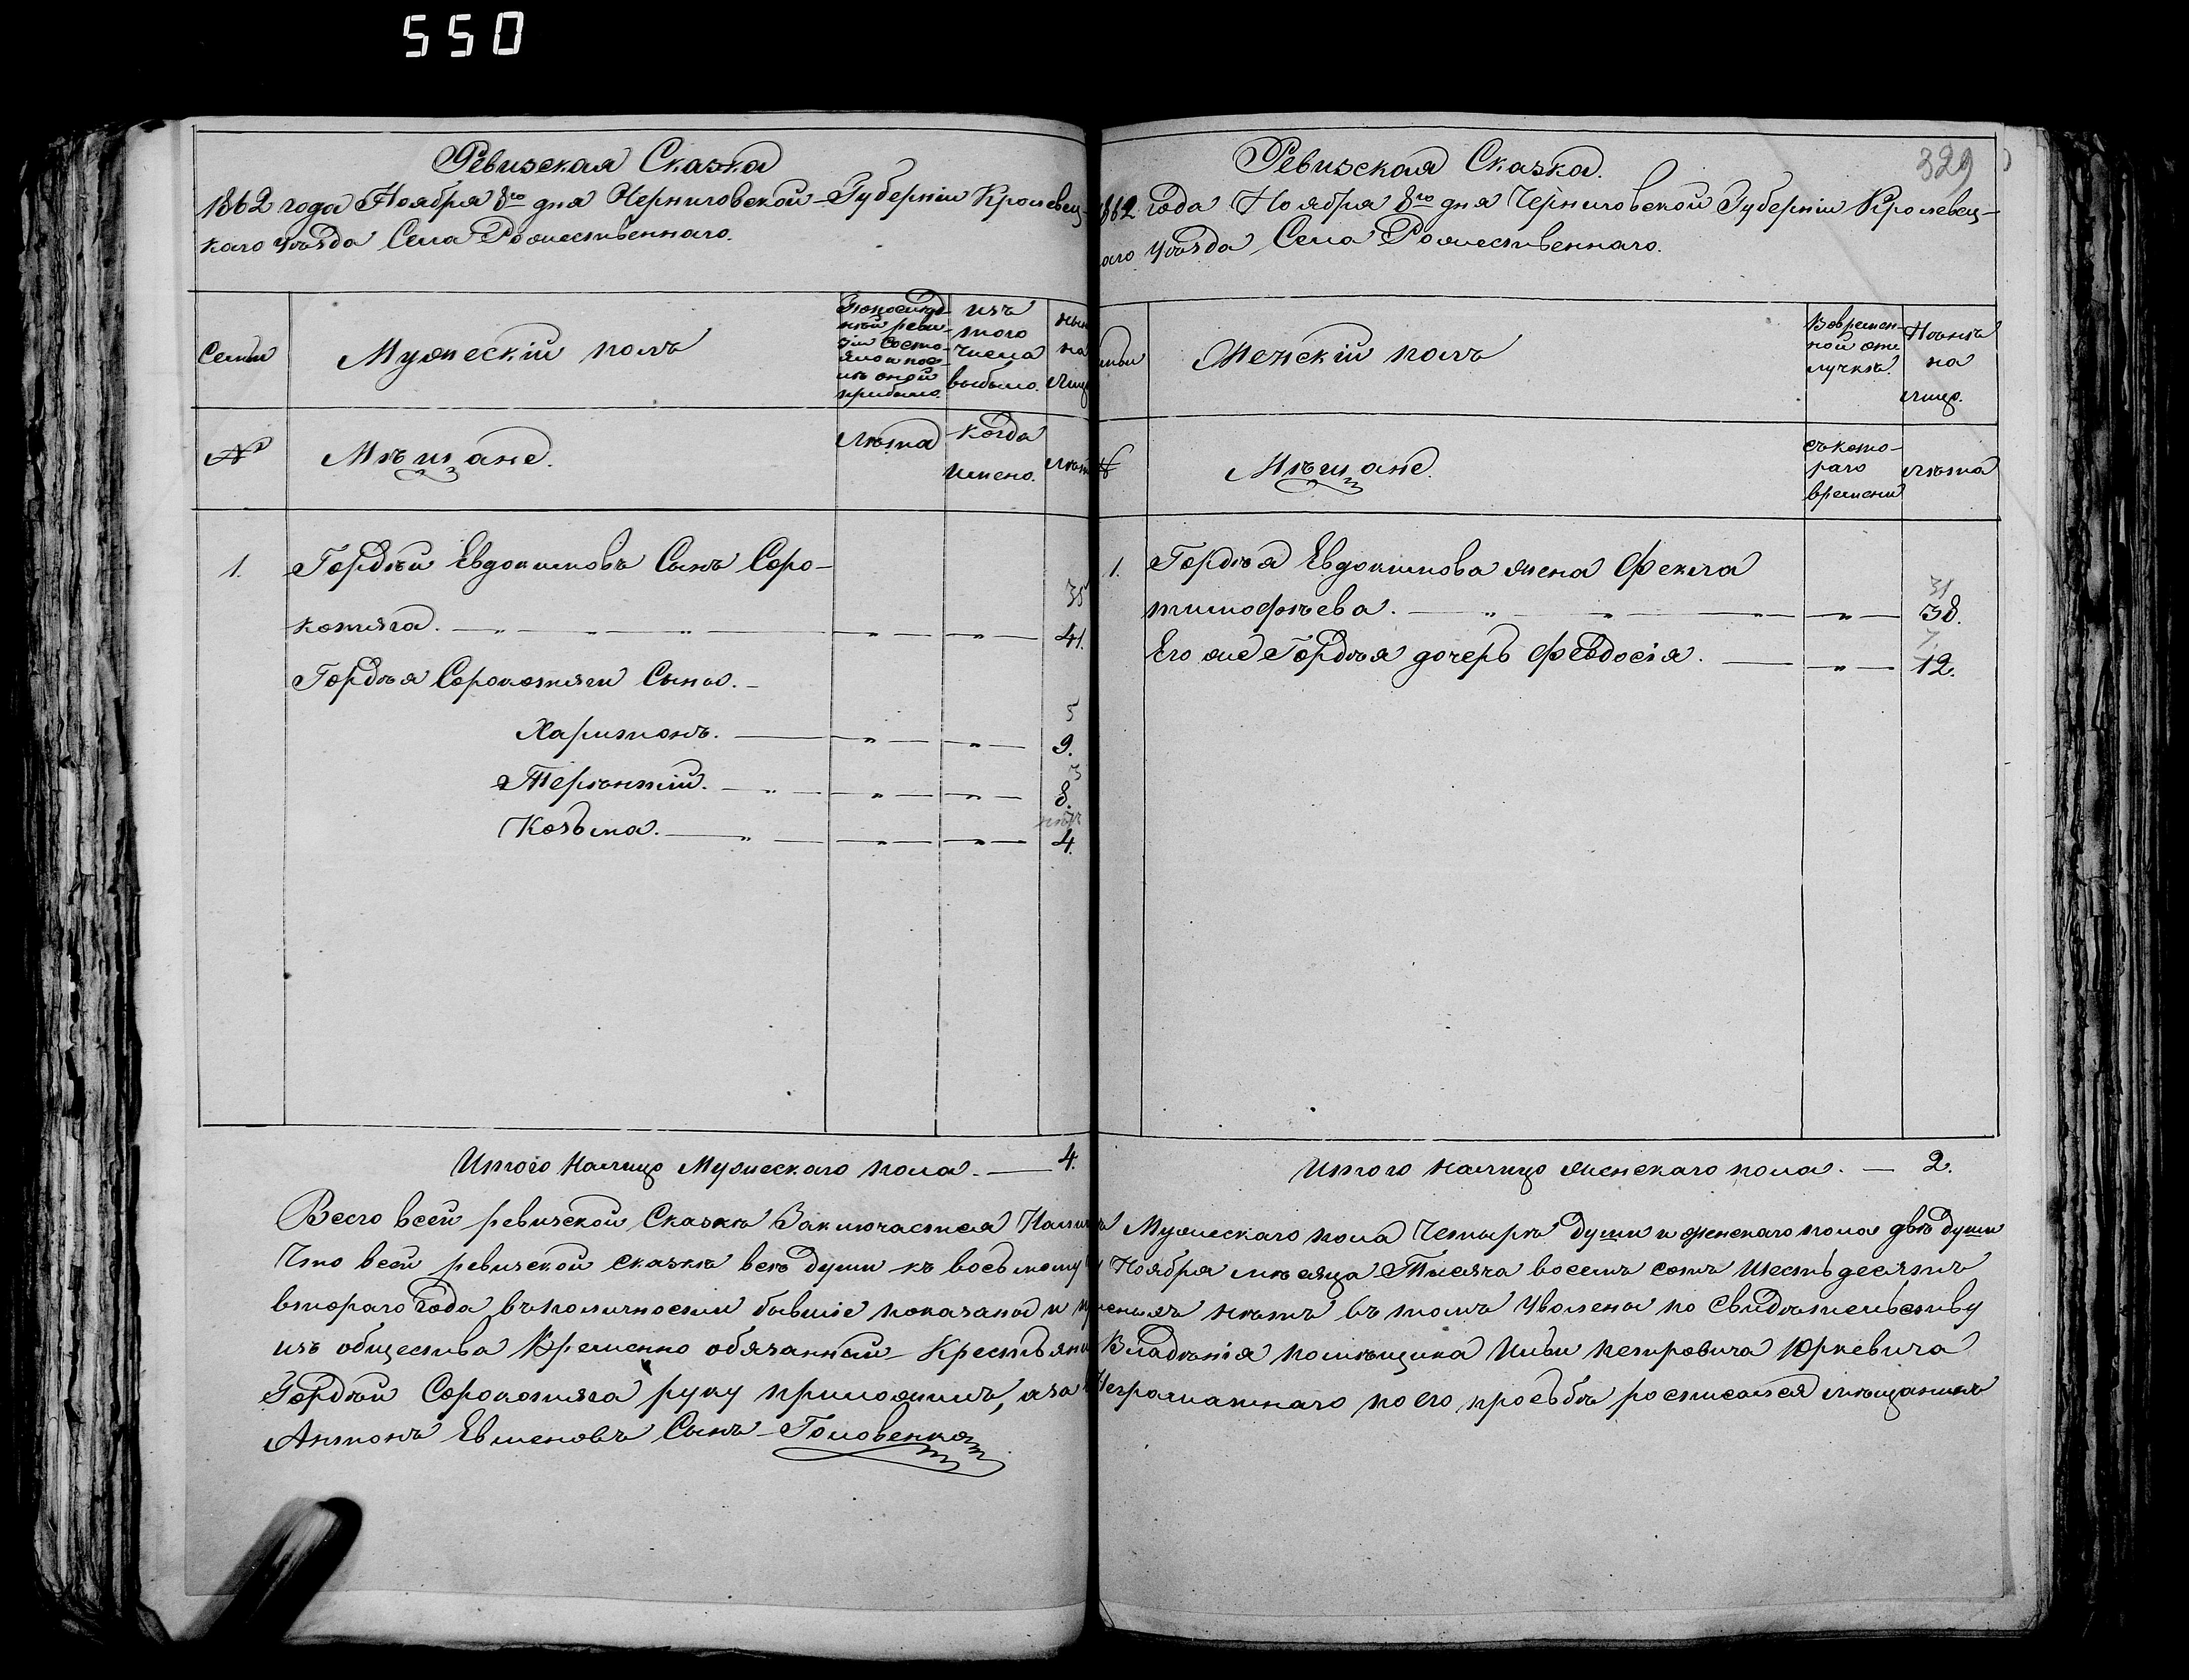 550
Ревизская Сказка
1862 года Ноября 8го дня Черниговской Губерніи Кролевец-
каго уѣзда Села Рожественнаго.
Семьи
Мужескій полъ
По послѣд-
ней реви-
зіи состо-
яло и пос-
лѣ оной
прибыло.
изъ
того
числа
выбыло.
нын
на
лиц
№
Мѣщане.
Лѣта
когда
имено.
Лѣт
1.
Гордѣй Евдокимовъ Сынъ Соро-
котяга.
35
41.
Гордѣя Сорокотяги Сыны.
Харитонъ.
5
9.
Терѣнтій.
3
8.
Козьма.
4.
Итого налицо Мужескаго пола. — 4.
329
Ревизская Сказка.
1862 года Ноября 8го дня Черниговской Губерніи Кролевец-
аго уѣзда Села Рожественнаго.
мьи
Женскій полъ
Вовремен-
ной отлучкѣ.
Нынѣ
на
лицо.
№
Мѣщане.
съ кото-
раго
времени
лѣта
1.
Гордѣя Евдокимова жена Фекла
тимофѣева.
31
38.
Его же Гордѣя дочерь Феѳдосія.
7
12.
Итого налицо женскаго пола. — 2.
Всего всей ревизской Сказкѣ Заключается Нали Мужескаго пола Четырѣ души и женскаго пола двѣ души
Что всей ревизской сказкѣ всѣ души къ восьмому Ноября мѣсяца Тысяча восемъ сотъ шестьдесятъ
втораго года въ поличности бывшіе показаны и нѣтъ въ томъ Уволены по Свидѣтельству
изъ общества Временно обязанный Крестьяни Владѣнія помѣщика Ильи петровича Юркевича
Гордѣй Сорокотяга руку приложилъ, а за Неграматнаго по его просьбѣ росписался мѣщанинъ
Антонъ Евменовъ Сынъ Головенко